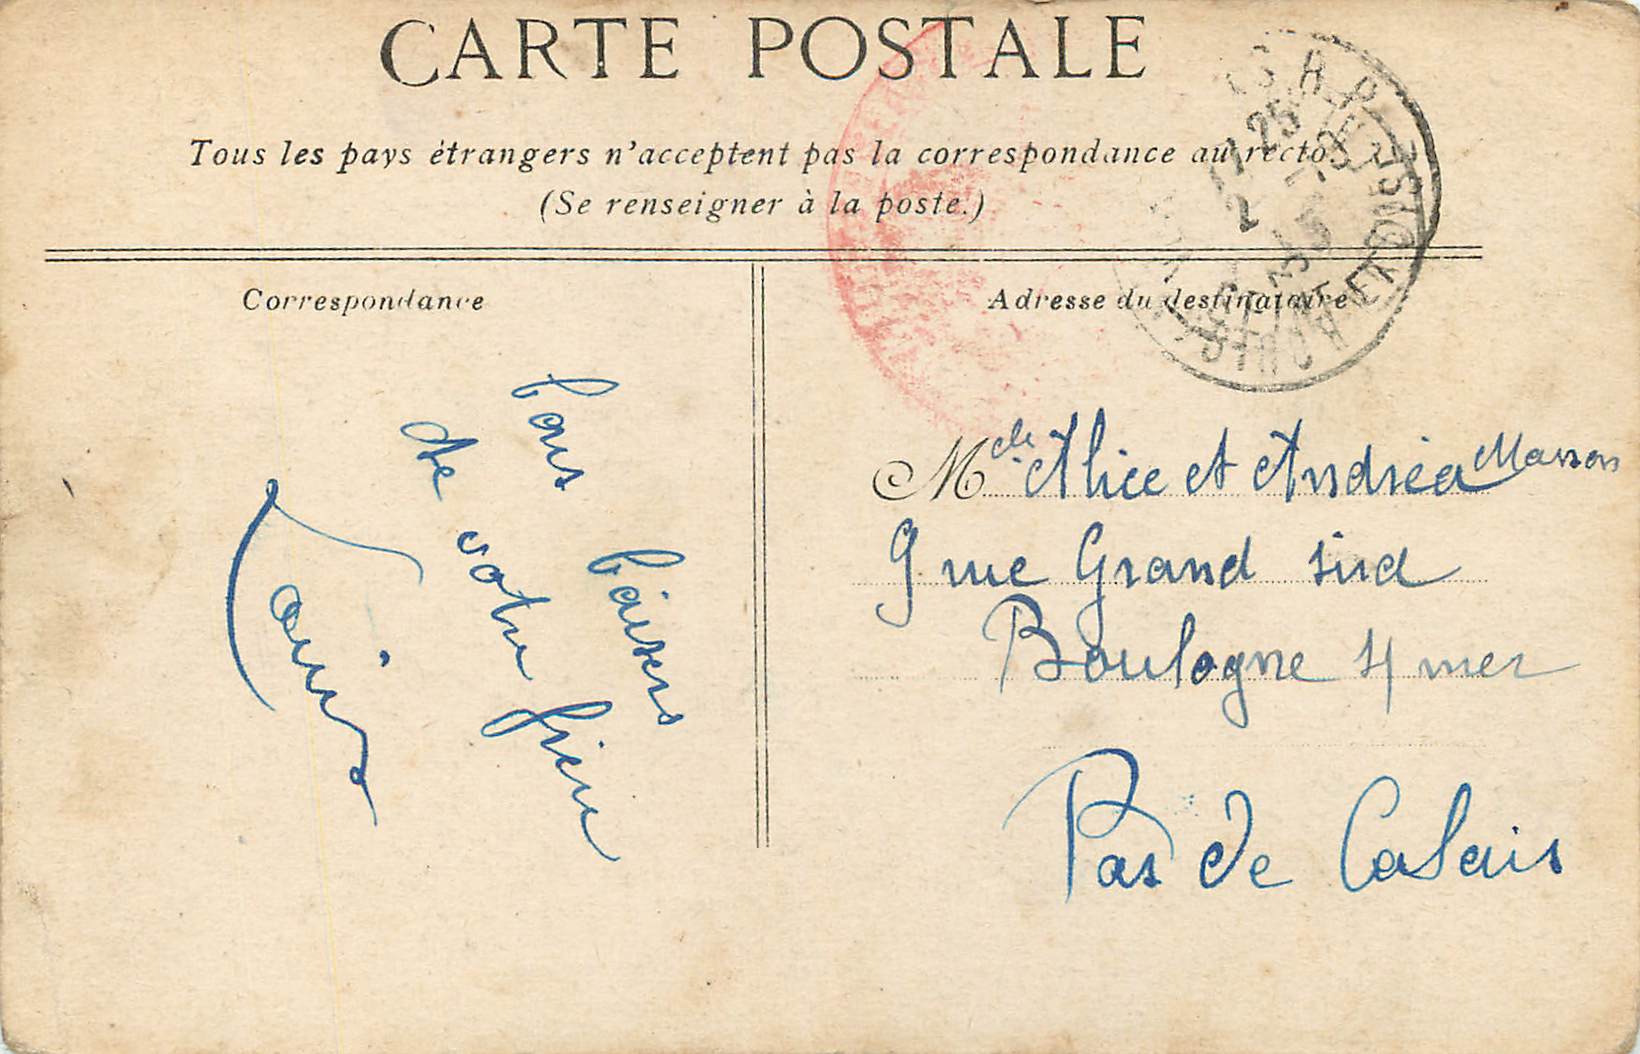 CARTE POSTALE
Tous les pays étrangers n'acceptent pas la correspondance au recto.
(Se renseigner à la poste.)
Correspondance
Adresse du destinataire
bons baisers
de votre frère
Louis
Melle Alice et Andréa Masson
9 rue Grand sird
Boulogne s/ mer
Pas de Calais